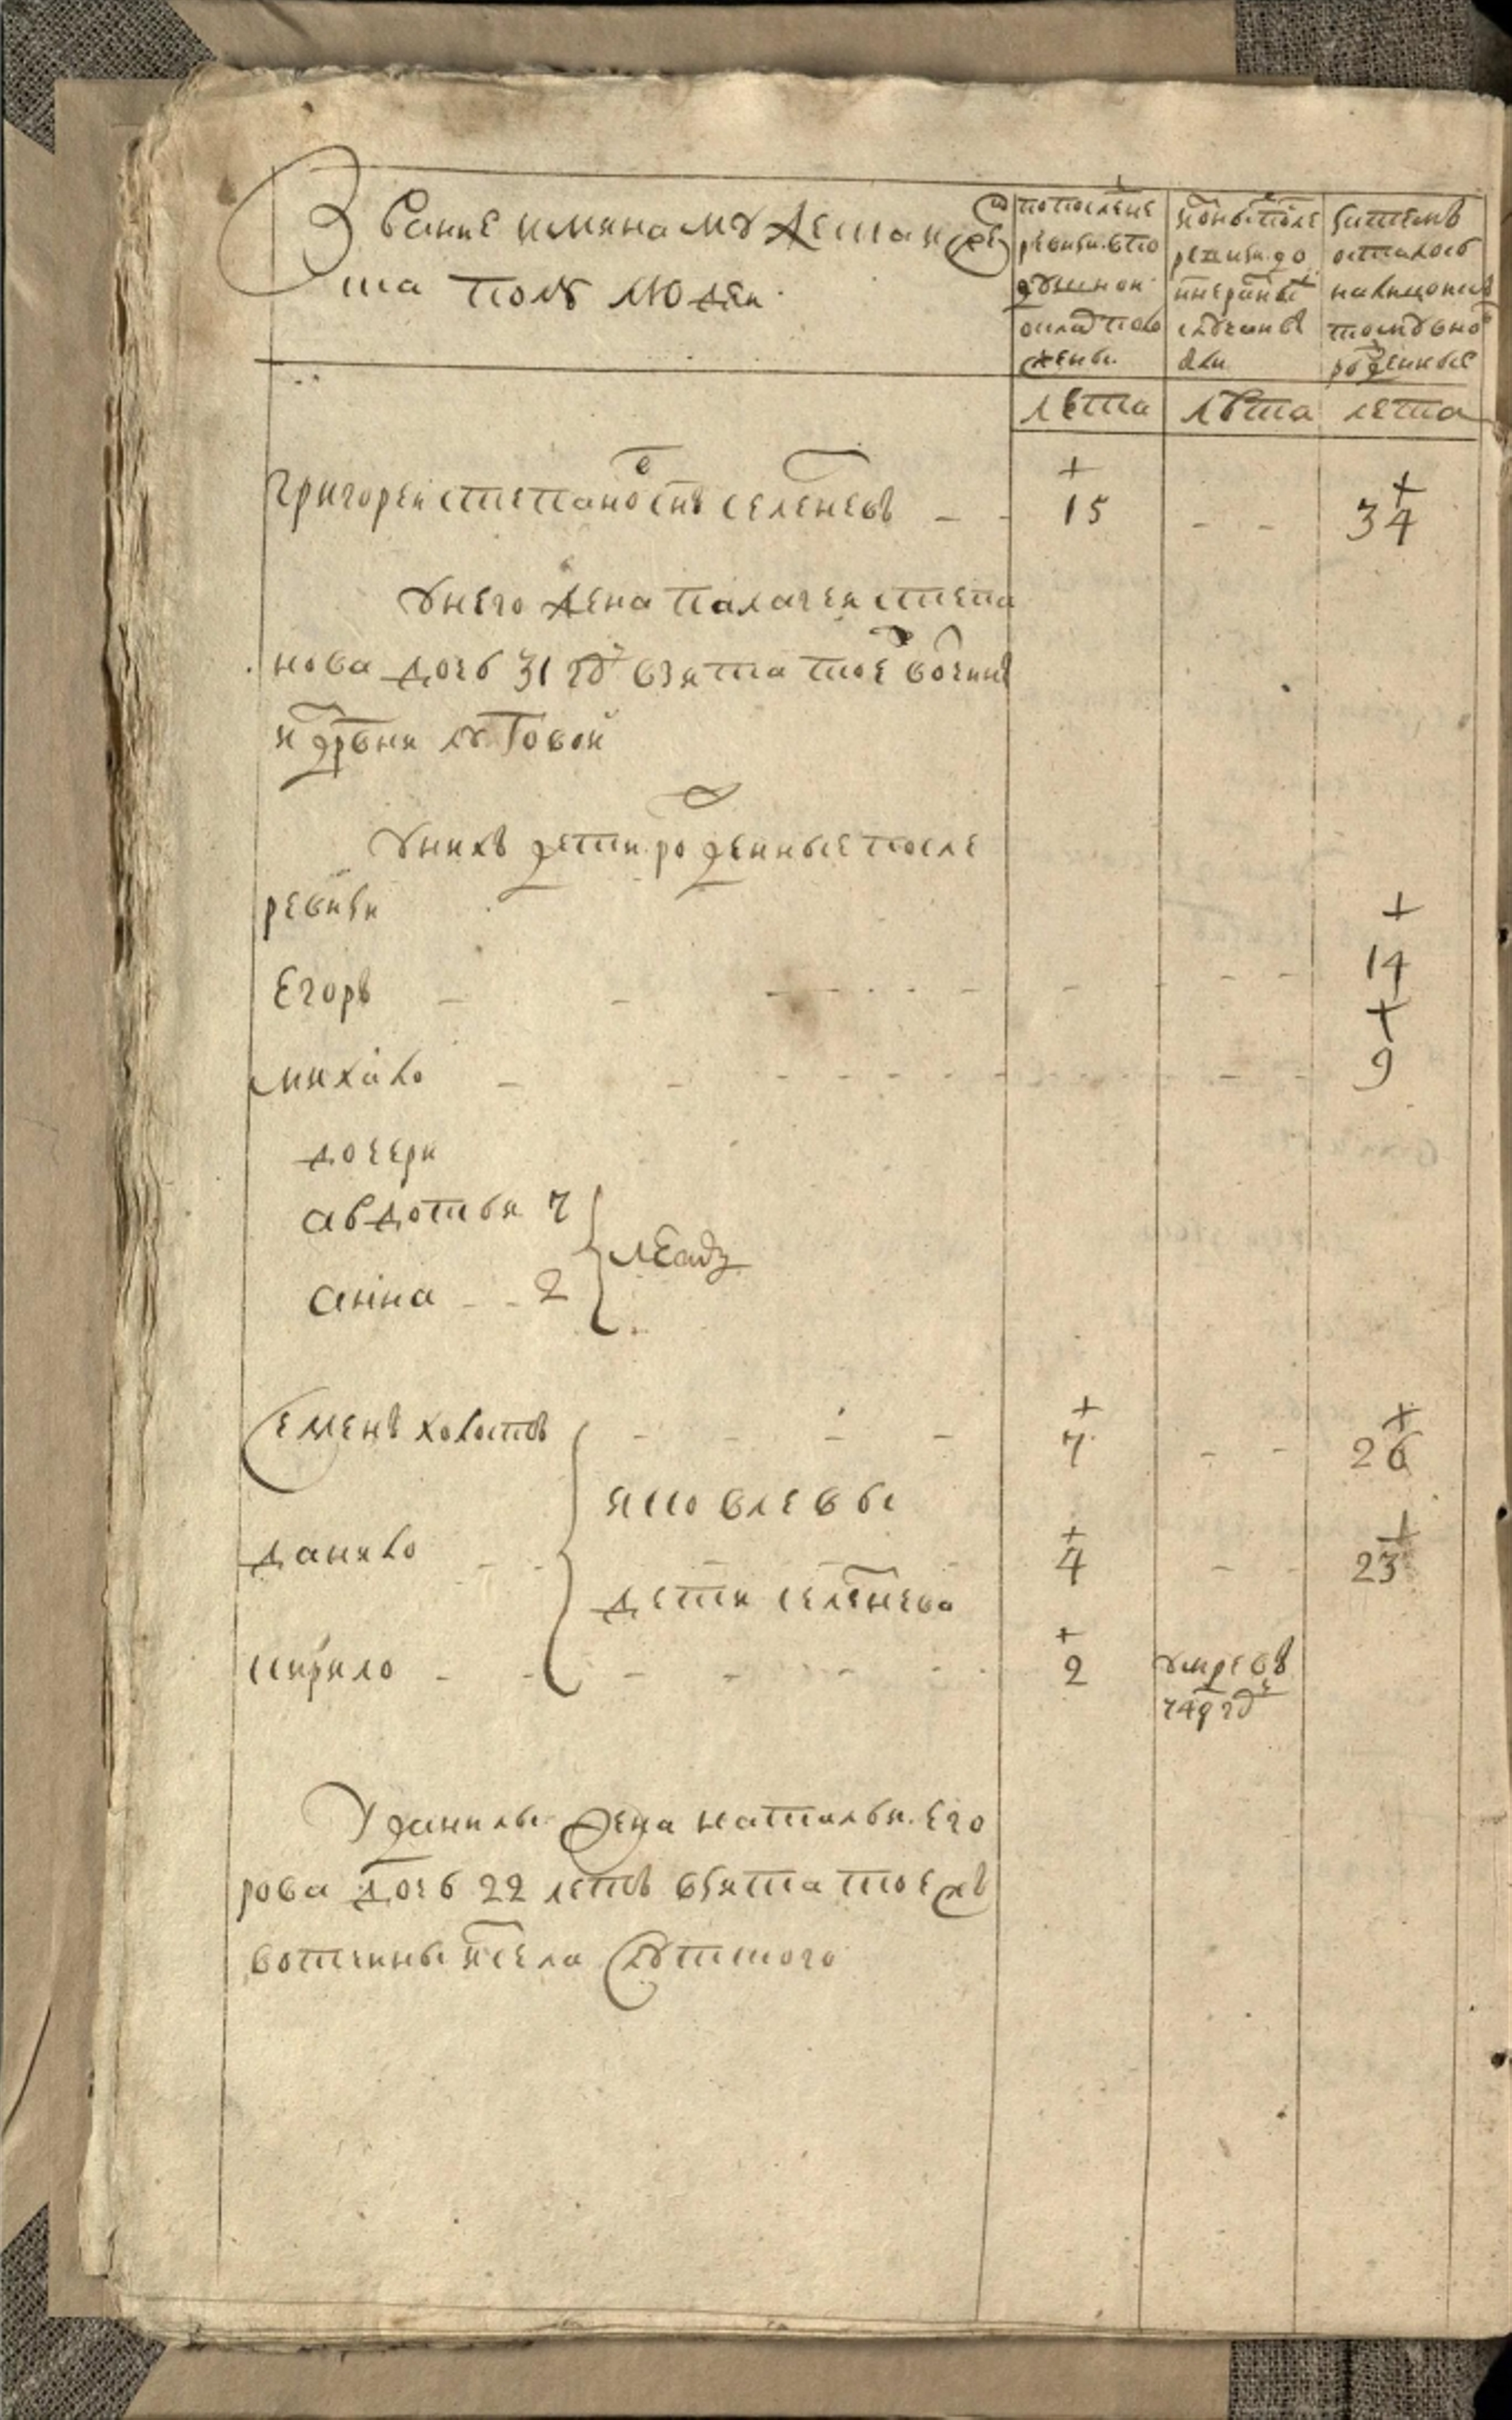 Звание имяна мужеска и женс
ка полу людей
по последне
ревизи в по
душной
оклад поло
жены
ис оных после
ревизи до
сказки
затемъ
осталось
налицо и в
новь
рожденные
лета
лѣта
лета
Григорей Степановъ сынъ Селеневъ 15 34
у него жена Палагея Степа
нова дочь 31 году взята тое вотчины
из деревни Лутовой
у нихъ дети рожденные после
ревизи
Егоръ 14
Михайло 9
дочери
Авдотья 7
Анна 2
лѣта
Семенъ холостъ 7 26
Яковлевы
Данило 4 23
дети Селенева
Кирило 2 умре в
749 году
У Данилы жена Наталья Его
рова дочь 22 летъ взята тое жъ
вотчины из села